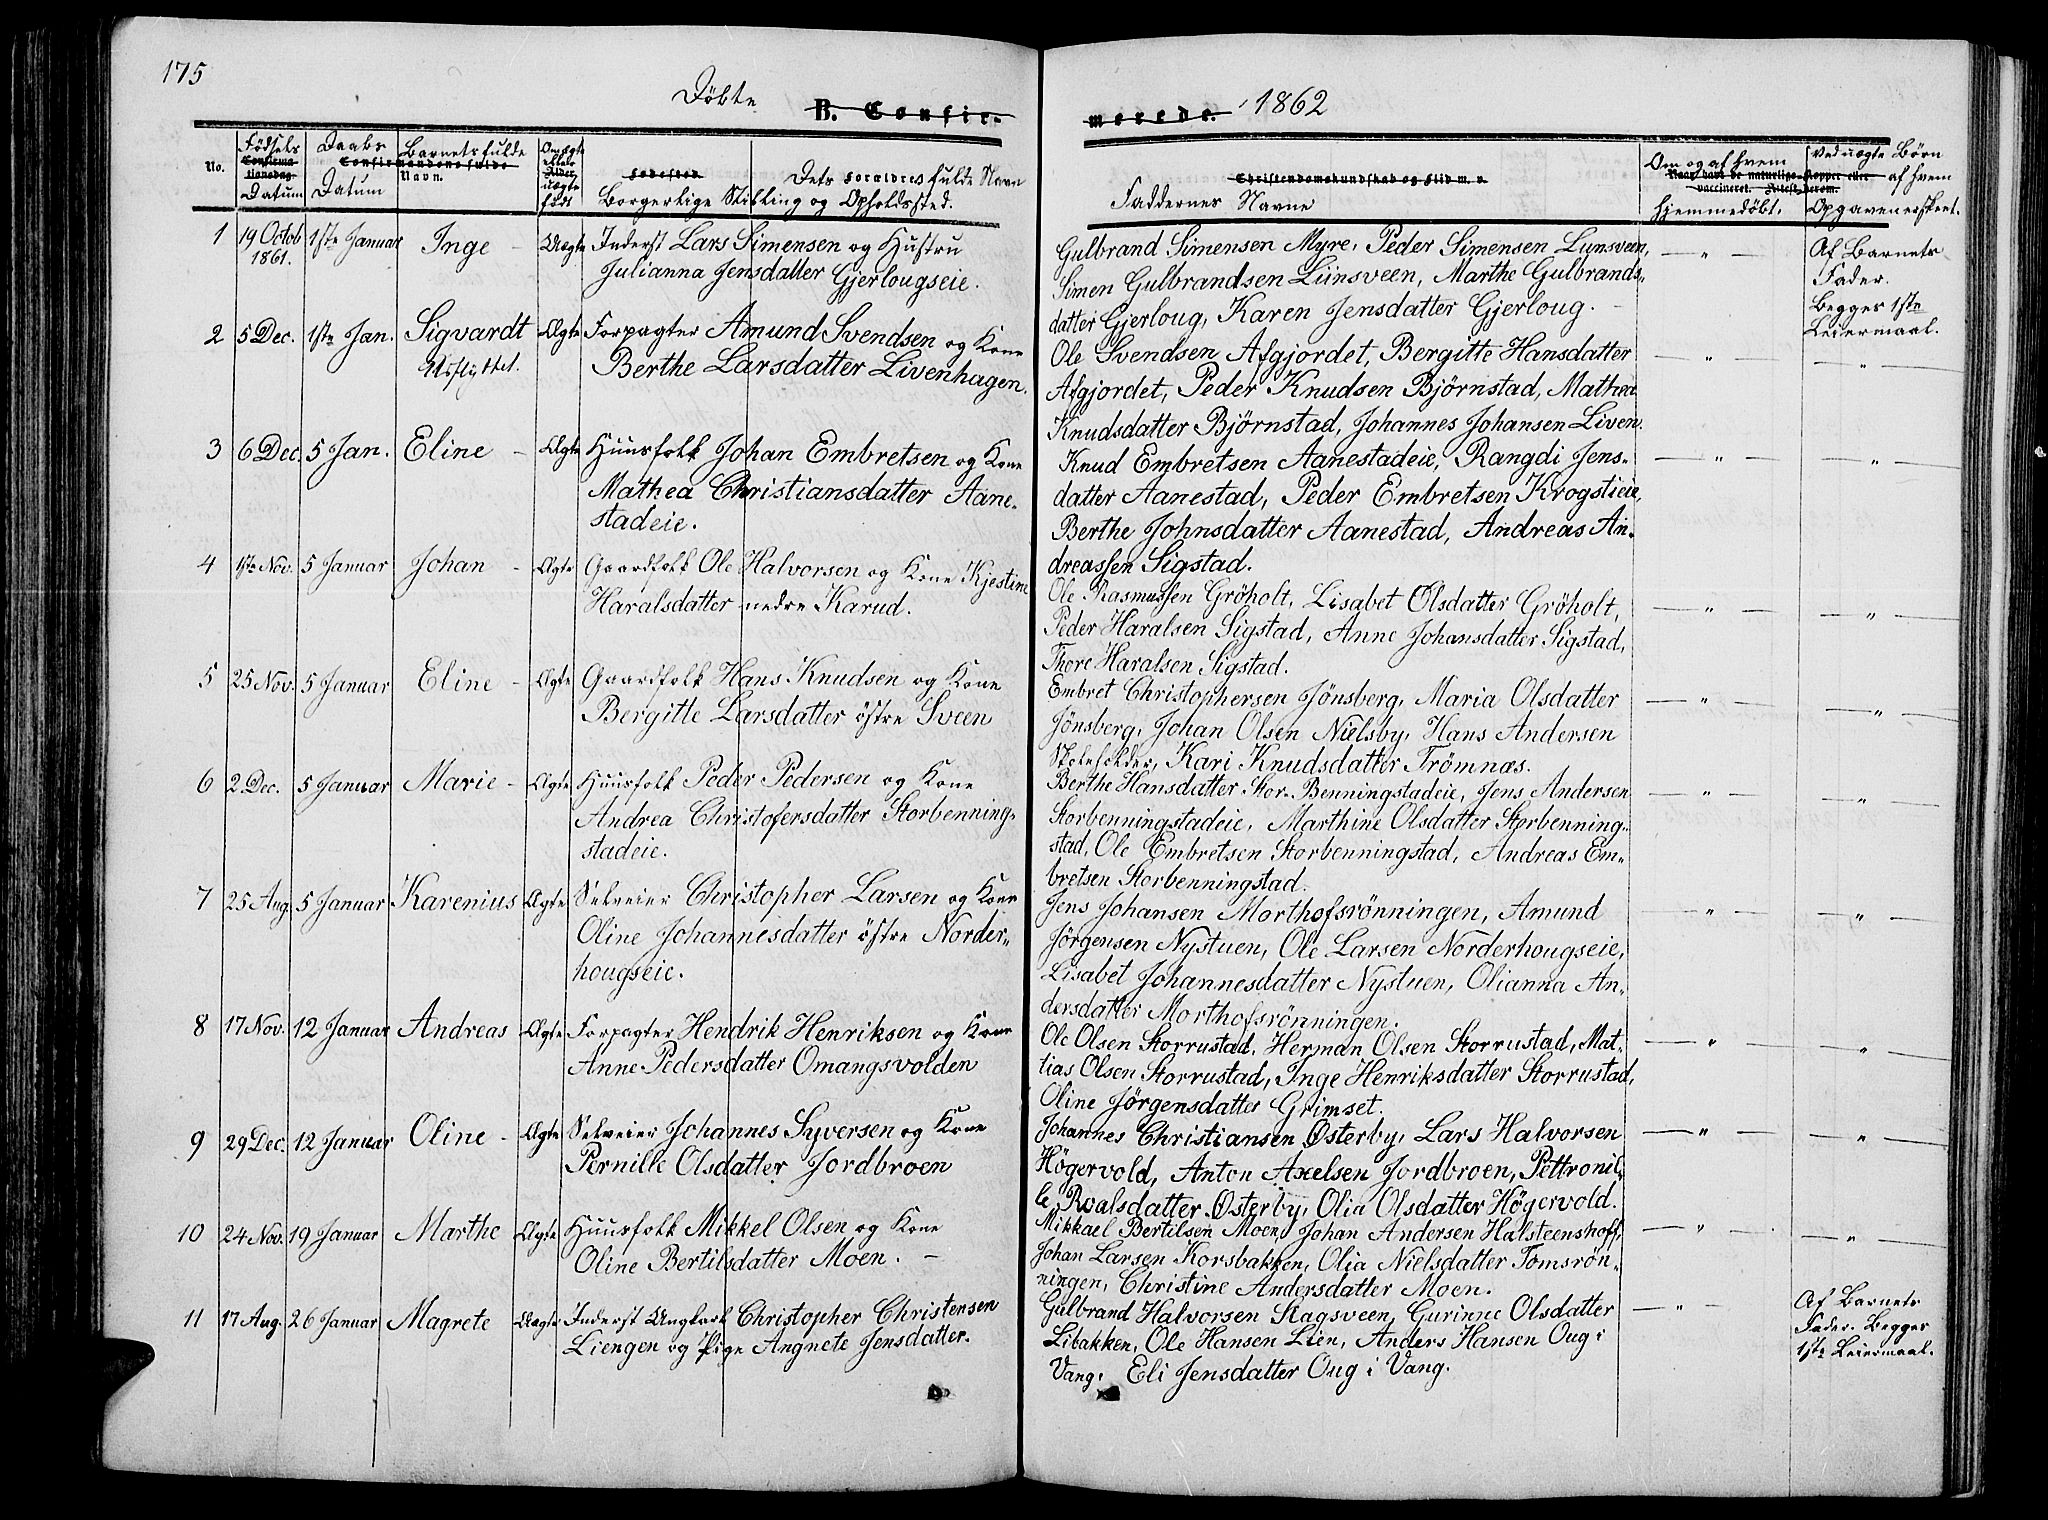 175
Döbte B. Confir-
No.
Fødsels
Confirma-
tionsdag
Datum
Daabs
Datum
Barnets fulde
Confirmandens fulde
Navn.
Om ægte
eller
Alder
uægte
født
Fødested Dets Forældres fulde Navn
Borgerlige Stilling og Opholdssted.
1 19 Octob 1ste Januar Inge - Uægte Inderst Lars Simensen og Hustru
1861. Julianna Jensdatter Gjerlougseie.
2 5 Dec. 1ste Jan. Sigvardt Ægte Forpagter Amund Svendsen og Kone
Udflyttet. Berthe Larsdatter Livenhagen.
3 6 Dec. 5 Jan. Eline - Ægte Huusfolk Johan Embretsen og Kone
Mathea Christiansdatter Aane-
stadeie.
4 1ste Nov. 5 Januar Johan - Ægte Gaardfolk Ole Halvorsen og Kone Kjestine
Haralsdatter nedre Karud.
5 25 Nov. 5 Januar Eline - Ægte Gaardfolk Hans Knudsen og Kone
Bergitte Larsdatter östre Sveen
6 2. Dec. 5 Januar Marie - Ægte Huusfolk Peder Pedersen og Kone
Andrea Christofersdatter Storbenning-
stadeie.
7 25 Aug. 5 Januar Karenius Ægte Selveier Christopher Larsen og Kone
Oline Johannesdatter östre Norder-
hougseie.
8 17 Nov. 12 Januar Andreas Ægte Forpagter Hendrik Henriksen og Kone
Anne Pedersdatter Omangsvolden
9 29 Dec. 12 Januar Oline - Ægte Selveier Johannes Syversen og Kone
Pernille Olsdatter Jordbroen
10 24 Nov. 19 Januar Marthe Ægte Huusfolk Mikkel Olsen og Kone
Oline Bertilsdatter Moen. -
11 17 Aug. 26 Januar Magrete Uægte Inderst Ungkarl Christopher Christensen
Liengen og Pige Angnete Jensdatter.
merede. 1862
Christendomskundskab og Flid m. v.
Faddernes Navne
Om og af hvem
Naar havt de naturlige Kopper eller
vaccineret. Attest herom.
hjemmedöbt.
Ved uægte Börn
af hvem
Opgaven er skeet.
Gulbrand Simensen Myre, Peder Simensen Lunsveen, — " — Af Barnets
Simen Gulbrandsen Liinsveen, Marthe Gulbrands- Fader.
datter Gjerloug, Karen Jensdatter Gjerloug. - Begges 1ste
Leiermaal.
Ole Svendsen Afgjordet, Bergitte Hansdatter — " — — " —
Afgjordet, Peder Knudsen Björnstad, Mathea
Knudsdatter Björnstad, Johannes Johansen Liven.
Knud Embretsen Aanestadeie, Rangdi Jens- — " — — " —
datter Aanestad, Peder Embretsen Krogstieie,
Berthe Johnsdatter Aanestad, Andreas An-
dreassen Sigstad.
Ole Rasmussen Gröholt, Lisabet Olsdatter Gröholt, — " — — " —
Peder Haralsen Sigstad, Anne Johansdatter Sigstad,
Thore Haralsen Sigstad.
Embret Christophersen Jönsberg, Maria Olsdatter — " — — " —
Jönsberg, Johan Olsen Nielsby, Hans Andersen
Skoleholder, Kari Knudsdatter Frömnæs.
Berthe Hansdatter Stor-Benningstadeie, Jens Andersen — " — — " —
Storbenningstadeie, Marthine Olsdatter Storbenning-
stad, Ole Embretsen Storbenningstad, Andreas Em-
bretsen Storbenningstad.
Jens Johansen Morthofsrönningen, Amund — " — — " —
Jörgensen Nystuen, Ole Larsen Norderhougseie,
Lisabet Johannesdatter Nystuen, Olianna An-
dersdatter Morthofsrönningen.
Ole Olsen Storrustad, Herman Olsen Storrustad, Mat- — " — — " —
tias Olsen Storrustad, Inge Henriksdatter Storrustad,
Oline Jörgensdatter Grimset.
Johannes Christiansen Østerby, Lars Halvorsen — " — — " —
Högervold, Anton Axelsen Jordbroen, Pettronil-
le Roalsdatter Østerby, Olia Olsdatter Högervold.
Mikkael Bertilsen Moen, Johan Andersen Halsteenshoff, — " — — " —
Johan Larsen Korsbakken, Olia Nielsdatter Tomsrön-
ningen, Christine Andersdatter Moen.
Gulbrand Halvorsen Slagsveen, Gurinne Olsdatter — " — Af Barnets
Libakken, Ole Hansen Lien, Anders Hansen Oug i Fader. Begges
Vang, Eli Jensdatter Oug i Vang. 1ste Leiermaal.